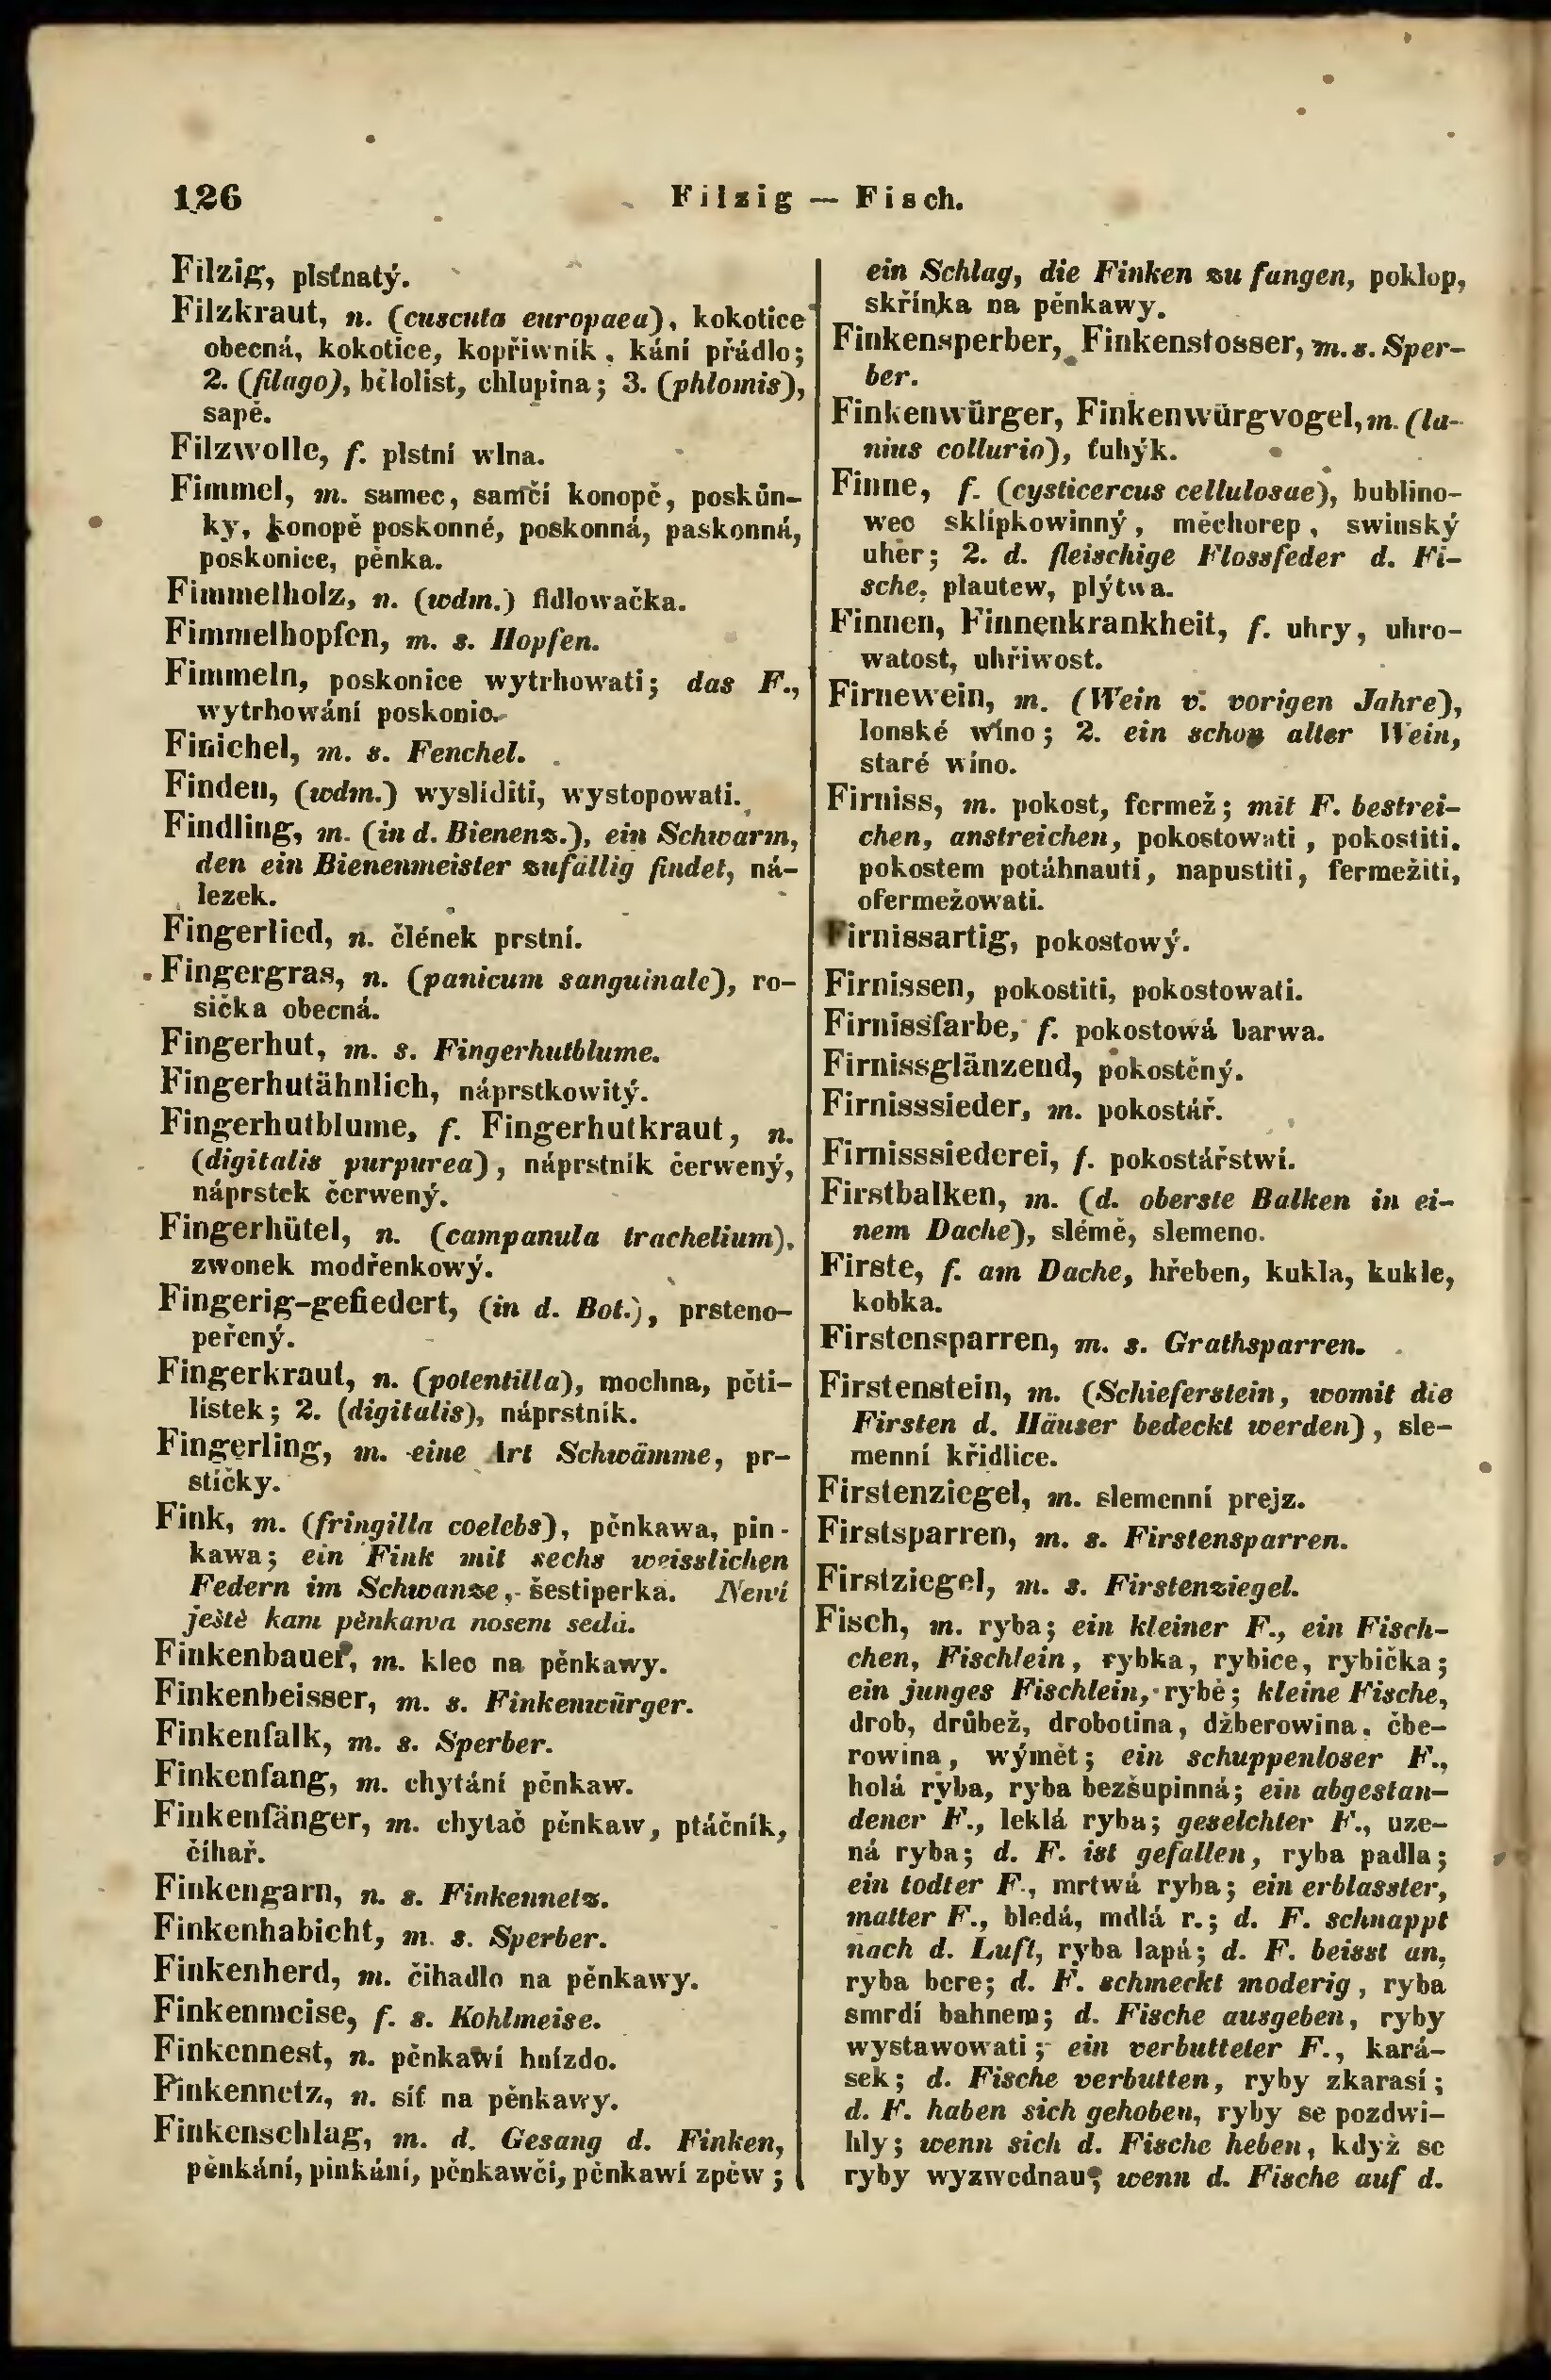 126
Filzig — Fisch.
Filzig, plsťnatý.
Filzkraut, n. (cuscuta europaea), kokotice
obecná, kokotice, kopřiwník, kání přádlo;
2. (filago), bělolist, chlupina; 3. (phlomis),
sapě.
Filzwolle, f. plstní wlna.
Fimmel, m. samec, samčí konopě, poskůn-
ky, konopě poskonné, poskonná, paskonná,
poskonice, pěnka.
Fimmelholz, n. (wdm.) fidlowačka.
Fimmelhopfen, m. s. Hopfen.
Fimmeln, poskonice wytrhowati; das F.,
wytrhowání poskonic.
Finichel, m. s. Fenchel.
Finden, (wdm.) wyslíditi, wystopowati.
Findling, m. (in d. Bienenz.), ein Schwarm,
den ein Bienenmeister zufällig findet, ná-
lezek.
Fingerlied, n. článek prstní.
Fingergras, n. (panicum sanguinale), ro-
sička obecná.
Fingerhut, m. s. Fingerhutblume.
Fingerhutähnlich, náprstkowitý.
Fingerhutblume, f. Fingerhutkraut, n.
(digitalis purpurea), náprstník čerwený,
náprstek čerwený.
Fingerhütel, n. (campanula trachelium),
zwonek modřenkowý.
Fingerig-gefiedert, (in d. Bot.), prsteno-
peřený.
Fingerkraut, n. (potentilla), mochna, pěti-
lístek; 2. (digitalis), náprstník.
Fingerling, m. eine Art Schwämme, pr-
stíčky.
Fink, m. (fringilla coelebs), pěnkawa, pin-
kawa; ein Fink mit sechs weisslichen
Federn im Schwanze, šestiperka. Newí
ještě kam pěnkawa nosem sedá.
Finkenbauer, m. klec na pěnkawy.
Finkenbeisser, m. s. Finkenwürger.
Finkenfalk, m. s. Sperber.
Finkenfang, m. chytání pěnkaw.
Finkenfänger, m. chytač pěnkaw, ptáčník,
čihař.
Finkengarn, n. s. Finkennetz.
Finkenhabicht, m. s. Sperber.
Finkenherd, m. čihadlo na pěnkawy.
Finkenmeise, f. s. Kohlmeise.
Finkennest, n. pěnkawí hnízdo.
Finkennetz, n. síť na pěnkawy.
Finkenschlag, m. d. Gesang d. Finken,
pěnkání, pinkání, pěnkawčí, pěnkawí zpěw;
ein Schlag, die Finken zu fangen, poklop,
skřínka na pěnkawy.
Finkensperber, Finkenstosser, m. s. Sper-
ber.
Finkenwürger, Finkenwürgvogel, m. (la-
nius collurio), ťuhýk.
Finne, f. (cysticercus cellulosae), bublino-
wec sklípkowinný, měchorep, swinský
uher; 2. d. fleischige Flossfeder d. Fi-
sche, plautew, plýtwa.
Finnen, Finnenkrankheit, f. uhry, uhro-
watost, uhřiwost.
Firnewein, m. (Wein v. vorigen Jahre),
lonské wíno; 2. ein schon alter Wein,
staré wíno.
Firniss, m. pokost, fermež; mit F. bestrei-
chen, anstreichen, pokostowati, pokostiti,
pokostem potáhnauti, napustiti, fermežiti,
ofermežowati.
Firnissartig, pokostowý.
Firnissen, pokostiti, pokostowati.
Firnissfarbe, f. pokostowá barwa.
Firnissglänzend, pokostěný.
Firnisssieder, m. pokostář.
Firnisssiederei, f. pokostářstwí.
Firstbalken, m. (d. oberste Balken in ei-
nem Dache), slémě, slemeno.
Firste, f. am Dache, hřeben, kukla, kukle,
kobka.
Firstensparren, m. s. Grathsparren.
Firstenstein, m. (Schieferstein, womit die
Firsten d. Häuser bedeckt werden), sle-
menní křidlice.
Firstenziegel, m. slemenní prejz.
Firstsparren, m. s. Firstensparren.
Firstziegel, m. s. Firstenziegel.
Fisch, m. ryba; ein kleiner F., ein Fisch-
chen, Fischlein, rybka, rybice, rybička;
ein junges Fischlein, rybě; kleine Fische,
drob, drůbež, drobotina, džberowina, čbe-
rowina, wýmět; ein schuppenloser F.,
holá ryba, ryba bezšupinná; ein abgestan-
dener F., leklá ryba; geselchter F., uze-
ná ryba; d. F. ist gefallen, ryba padla;
ein todter F., mrtwá ryba; ein erblasster,
matter F., bledá, mdlá r.; d. F. schnappt
nach d. Luft, ryba lapá; d. F. beisst an,
ryba bere; d. F. schmeckt moderig, ryba
smrdí bahnem; d. Fische ausgeben, ryby
wystawowati; ein verbutteter F., kará-
sek; d. Fische verbutten, ryby zkarasí;
d. F. haben sich gehoben, ryby se pozdwi-
hly; wenn sich d. Fische heben, když se
ryby wyzwednau; wenn d. Fische auf d.